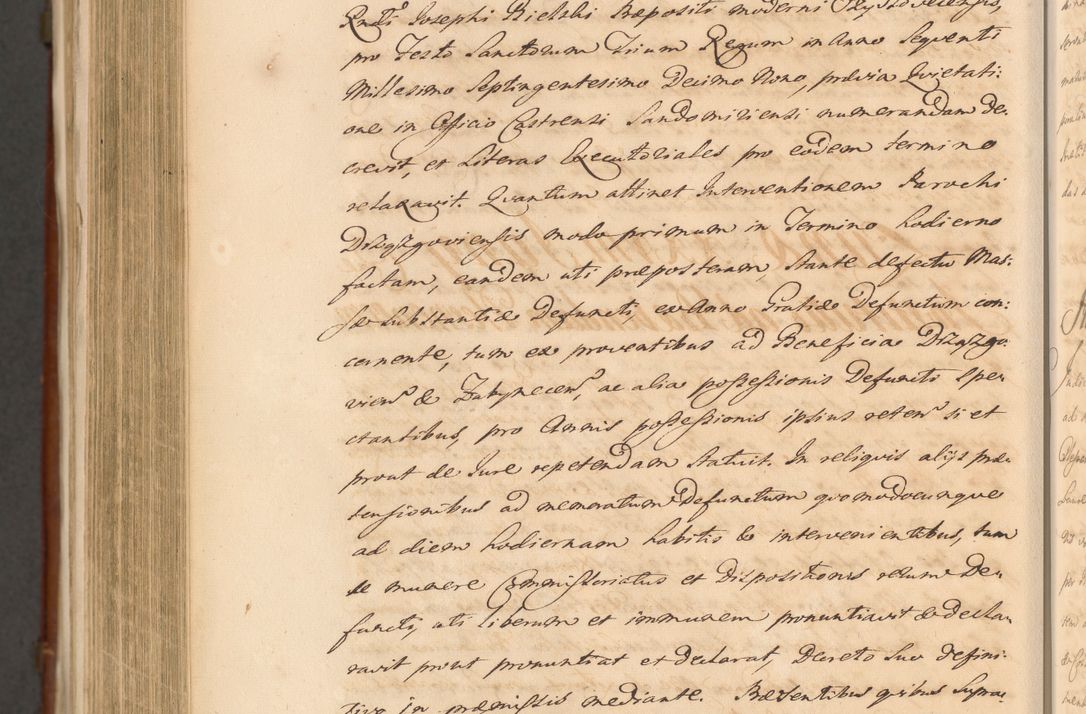 Rndi Josephi Bielski Præpositi moderni
pro Festo Sanctorum Trium Regum in Anno Sequenti
Millesimo Septingentesimo Decimo Nono, prævia Quietati:
one in Officio Castrensi Sandomiriensi numerandam De:
crevit, et Literas Executoriales pro eodem termino
relaxavit. Quantum attinet Interventionem Parochi
Drzązgoviensis modo primum in Termino hodierno
factam, eandem uti præposteram, stante defectu Mas:
sæ Substantiæ Defuncti, ex Anno Gratiæ Defunctum con:
cernente, tum ex proventibus ad Beneficia Drzązgo:
vien. & ac alia possessionis Defuncti spe:
ctantibus, pro Annis possessionis ipsius reten. si et
prout de Jure repetendam statuit. In reliquis alijs præ:
tensionibus ad memoratum Defunctum quomodocunque
ad diem hodiernam habitis & intervenientibus, tum
de munere Commissoriatus et Dispositionis rerum De:
functi, uti liberum et immunem pronuntiavit & decla:
ravit prout pronuntiat et declarat, Decreto Suo defini:
tivo in præmissis mediante. Præsentibus quibus Supra: